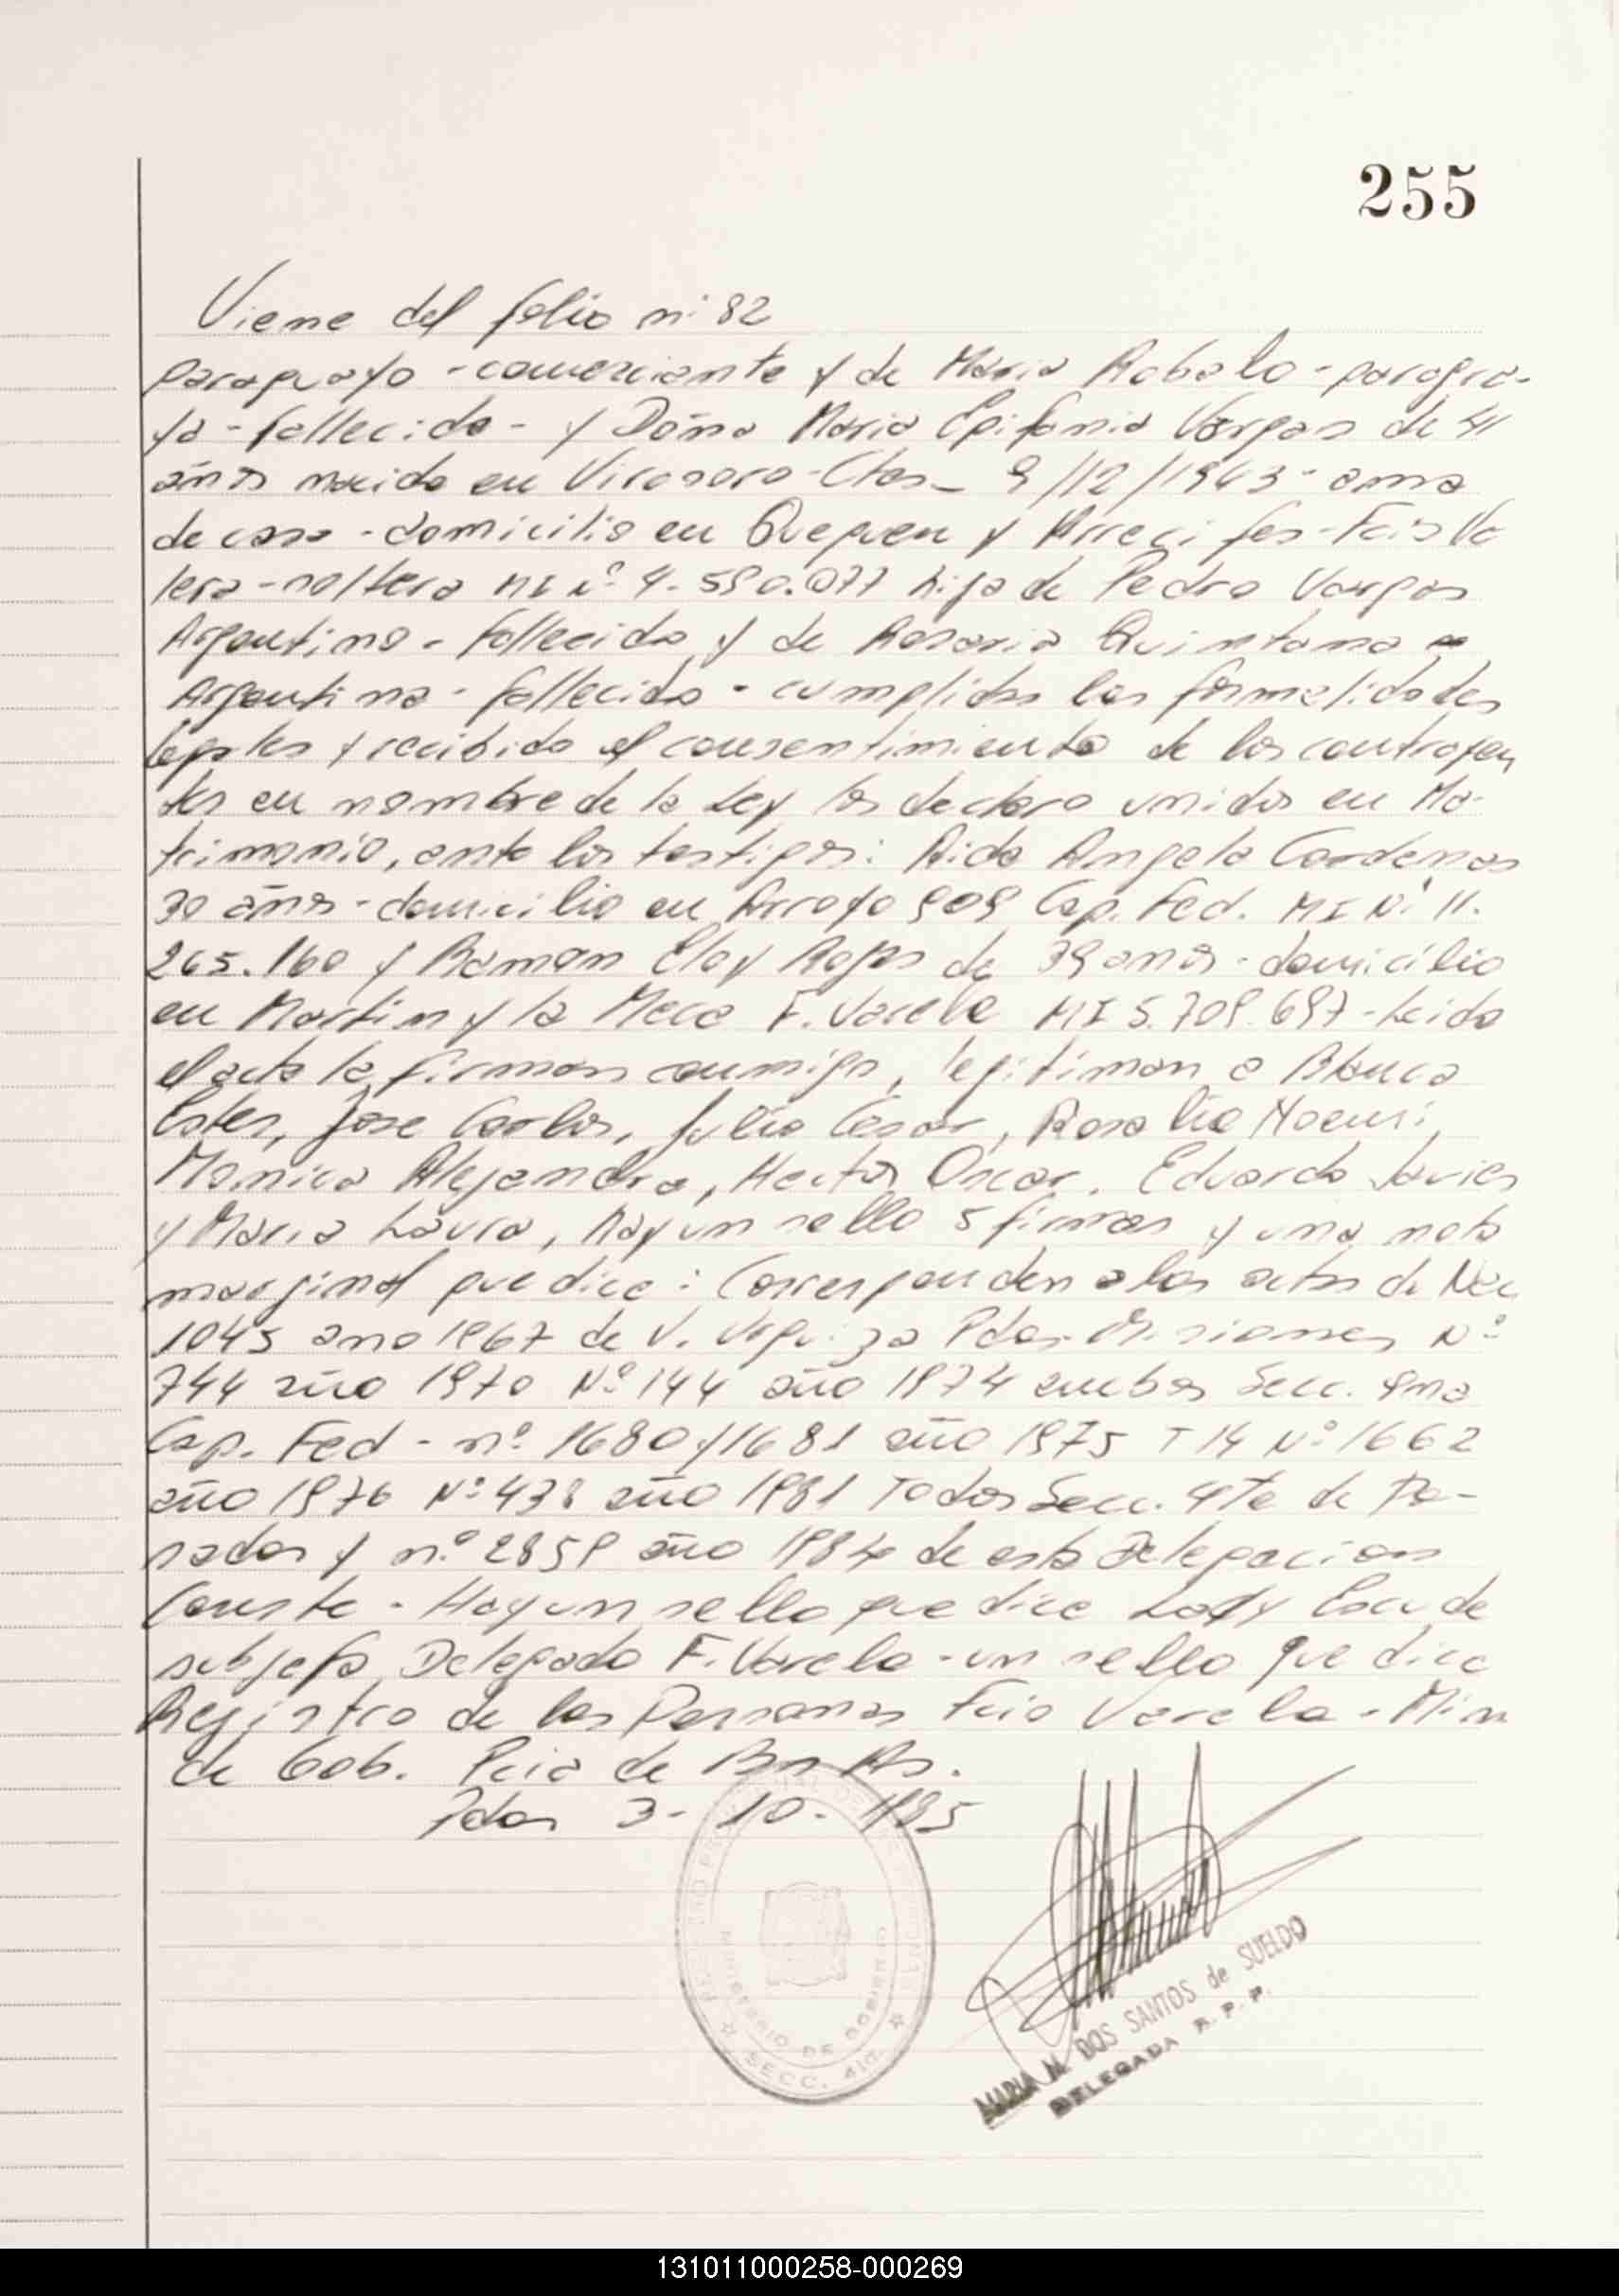 255
Viene del folio nº 82
paraguayo - comerciante y de Maria Robalo - paragua-
ya - fallecida - y Doña Maria Epifania Vargas de 41
años nacida en Virasoro - Ctes - 9/12/1943 - ama
de casa - domicilio en Quequen y Arrecifes - Fcio Va
lera - soltera MI nº 4.590.077 hija de Pedro Vargas
Argentino - fallecido y de Rosario Quintana
Argentina - fallecida - cumplidas las formalidades
legales y recibido el consentimiento de los contrayen
tes en nombre de la Ley los declaro unidos en Ma-
trimonio, ante los testigos: Aida Angela Cardenas
30 años - domicilio en Arroyo 909 Cap. Fed. MI Nº 11.
265.160 y Ramon Eloy Rojas de 39 años - domicilio
en Martin y la Meca F. Varela MI 5.709.697 - Leida
el acta la firman conmigo, legitiman a Blanca
Ester, Jose Carlos, Julio Cesar, Rosalia Noemi,
Monica Alejandra, Hector Oscar, Eduardo Javier
y Maria Laura, hay un sello 5 firmas y una nota
marginal que dice: Corresponden a las actas de Nac
1045 año 1967 de V. Urquiza Pdas. Misiones Nº
744 año 1970 Nº 144 año 1974 ambas Secc. 4ma
Cap. Fed - nº 1680 y 1681 año 1975 T 14 Nº 1662
año 1976 Nº 438 año 1981 Todos Secc. 4ta de Po-
sadas y nº 2859 año 1984 de esta Delegacion
Conste - Hay un sello que dice Lady
subjefa Delegado F. Varela - un sello que dice
Registro de las Personas Fcio Varela - Min
de Gob. Pcia de Bs As.
Pdas 3-10-1985
MINISTERIO DE GOBIERNO
SECC. 4ta.
MARIA N. DOS SANTOS de SUELDO
DELEGADA R. P. P.
131011000258-000269